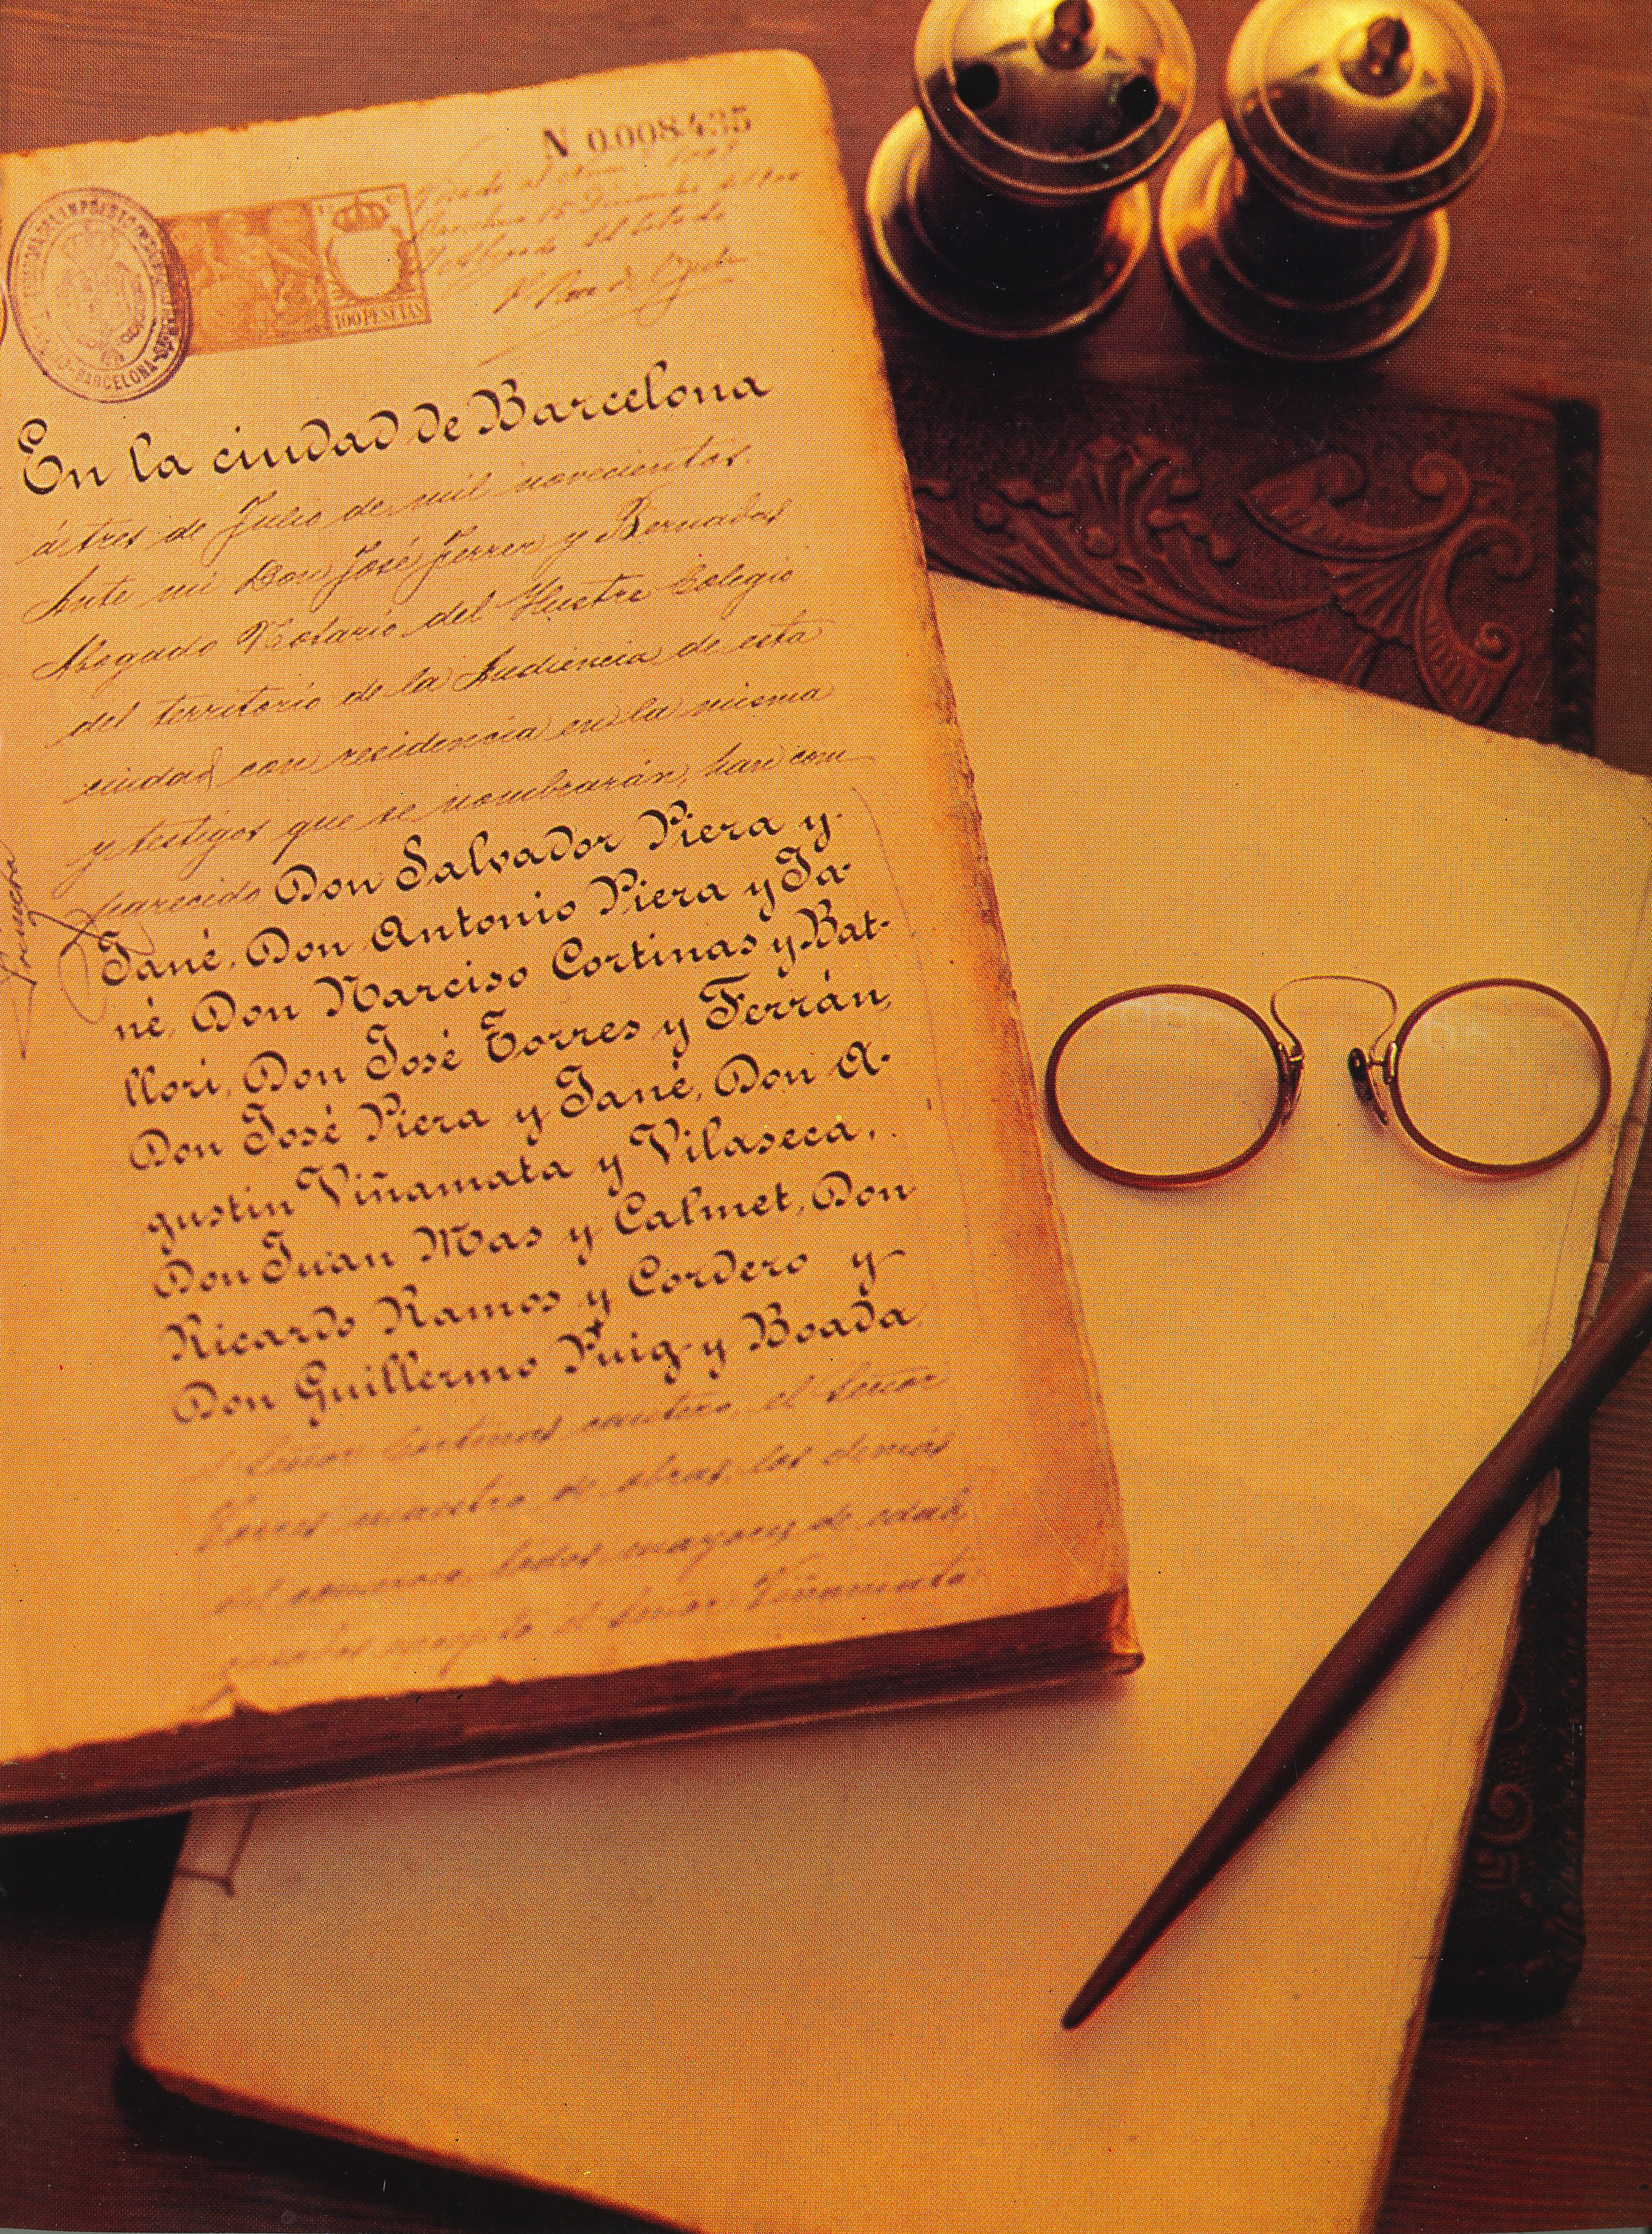 N 0.008.435
100 PESETAS
BARCELONA
En la ciudad de Barcelona
á tres de Julio de mil novecientos.
Ante mi Don José Ferrer y Bernadas
Abogado Notario del Ilustre Colegio
del territorio de la Audiencia de esta
ciudad con residencia en la misma
y testigos que se nombrarán, han com
parecido Don Salvador Piera y
Jané, Don Antonio Piera y Ja-
né, Don Narciso Cortinas y Bat-
llori, Don José Torres y Ferrán,
Don José Piera y Jané, Don A-
gustin Viñamata y Vilaseca,
Don Juan Mas y Calmet, Don
Ricardo Ramos y Cordero y
Don Guillermo Puig y Boada
el Señor Cortinas cantero, el Señor
Torres maestro de obras, los demás
del comercio, todos mayores de edad,
casados excepto el Señor Viñamata